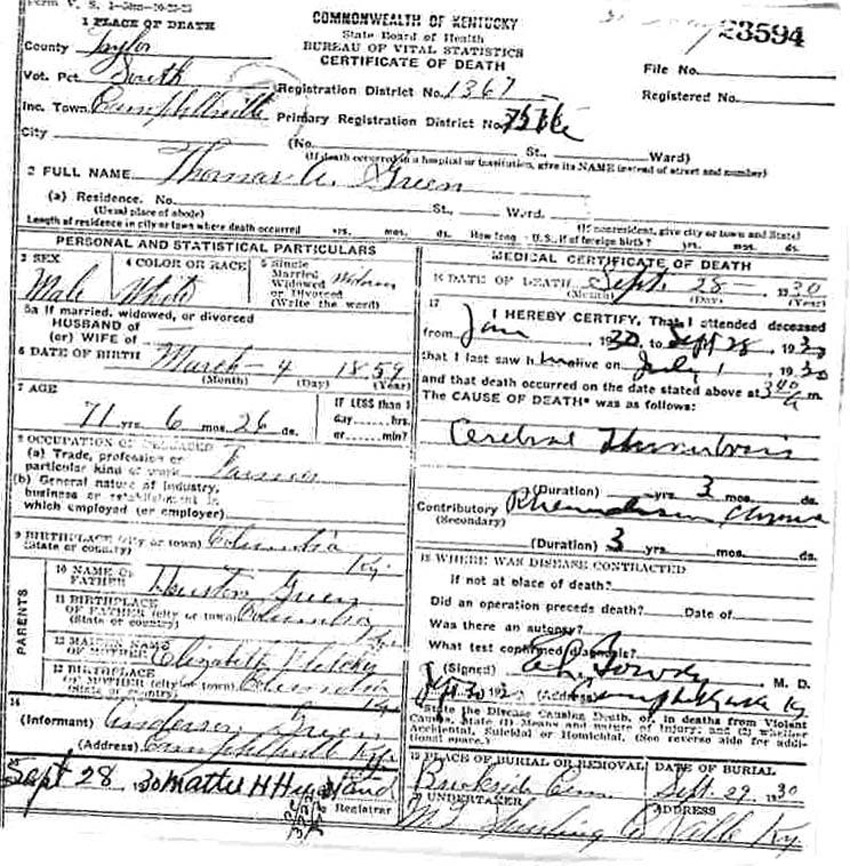 Form V. S.
COMMONWEALTH OF KENTUCKY
State Board of Health
BUREAU OF VITAL STATISTICS
CERTIFICATE OF DEATH
23594
1 PLACE OF DEATH
County Taylor
Vot. Pct. South
Inc. Town Campbellsville
City
Registration District No. 1367
Primary Registration District No.
File No.
Registered No.
(No. St., Ward)
(If death occurred in a hospital or institution, give its NAME instead of street and number)
2 FULL NAME Thomas A. Green
(a) Residence. No. St., Ward.
(Usual place of abode) (If nonresident, give city or town and State)
Length of residence in city or town where death occurred yrs. mos. ds. How long U.S., if of foreign birth? yrs. mos. ds.
PERSONAL AND STATISTICAL PARTICULARS
3 SEX Male
4 COLOR OR RACE White
5 Single Married Widowed or Divorced (Write the word)
5a If married, widowed, or divorced
HUSBAND of
(or) WIFE of
6 DATE OF BIRTH March 4 1859
(Month) (Day) (Year)
7 AGE
71 yrs. 6 mos. 26 ds.
IF LESS than 1 day hrs. or min?
8 OCCUPATION OF DECEASED
(a) Trade, profession or particular kind of work Farmer
(b) General nature of Industry, business or establishment in which employed (or employer)
9 BIRTHPLACE (city or town) Columbia
(State or country) Ky.
PARENTS
10 NAME OF FATHER Huston Green
11 BIRTHPLACE OF FATHER (city or town) Columbia
(State or country) Ky
12 MAIDEN NAME OF MOTHER Elizabeth Fletcher
13 BIRTHPLACE OF MOTHER (city or town) Columbia
(State or country) Ky
14
(Informant) Anderson Green
(Address) Campbellsville Ky
15
Sept 28 1930 Mattie H
Registrar
MEDICAL CERTIFICATE OF DEATH
16 DATE OF DEATH Sept. 28 1930
(Month) (Day) (Year)
17
I HEREBY CERTIFY, That I attended deceased
from Jan 1930, to Sept 28, 1930
that I last saw him alive on July 1, 1930
and that death occurred on the date stated above at 340 a m.
The CAUSE OF DEATH* was as follows:
Cerebral Thrombosis
(Duration) yrs. 3 mos. ds.
Contributory
(Secondary)
(Duration) 3 yrs. mos. ds.
18 WHERE WAS DISEASE CONTRACTED
if not at place of death?
Did an operation precede death? Date of
Was there an autopsy?
What test confirmed diagnosis?
(Signed) M. D.
(Address) Campbellsville Ky
*State the Disease Causing Death, or, in deaths from Violent Causes, State (1) Means and nature of Injury; and (2) whether Accidental, Suicidal or Homicidal. (See reverse side for additional space.)
19 PLACE OF BURIAL OR REMOVAL Brookside Cem.
DATE OF BURIAL Sept. 29 1930
UNDERTAKER
ADDRESS
Ky.